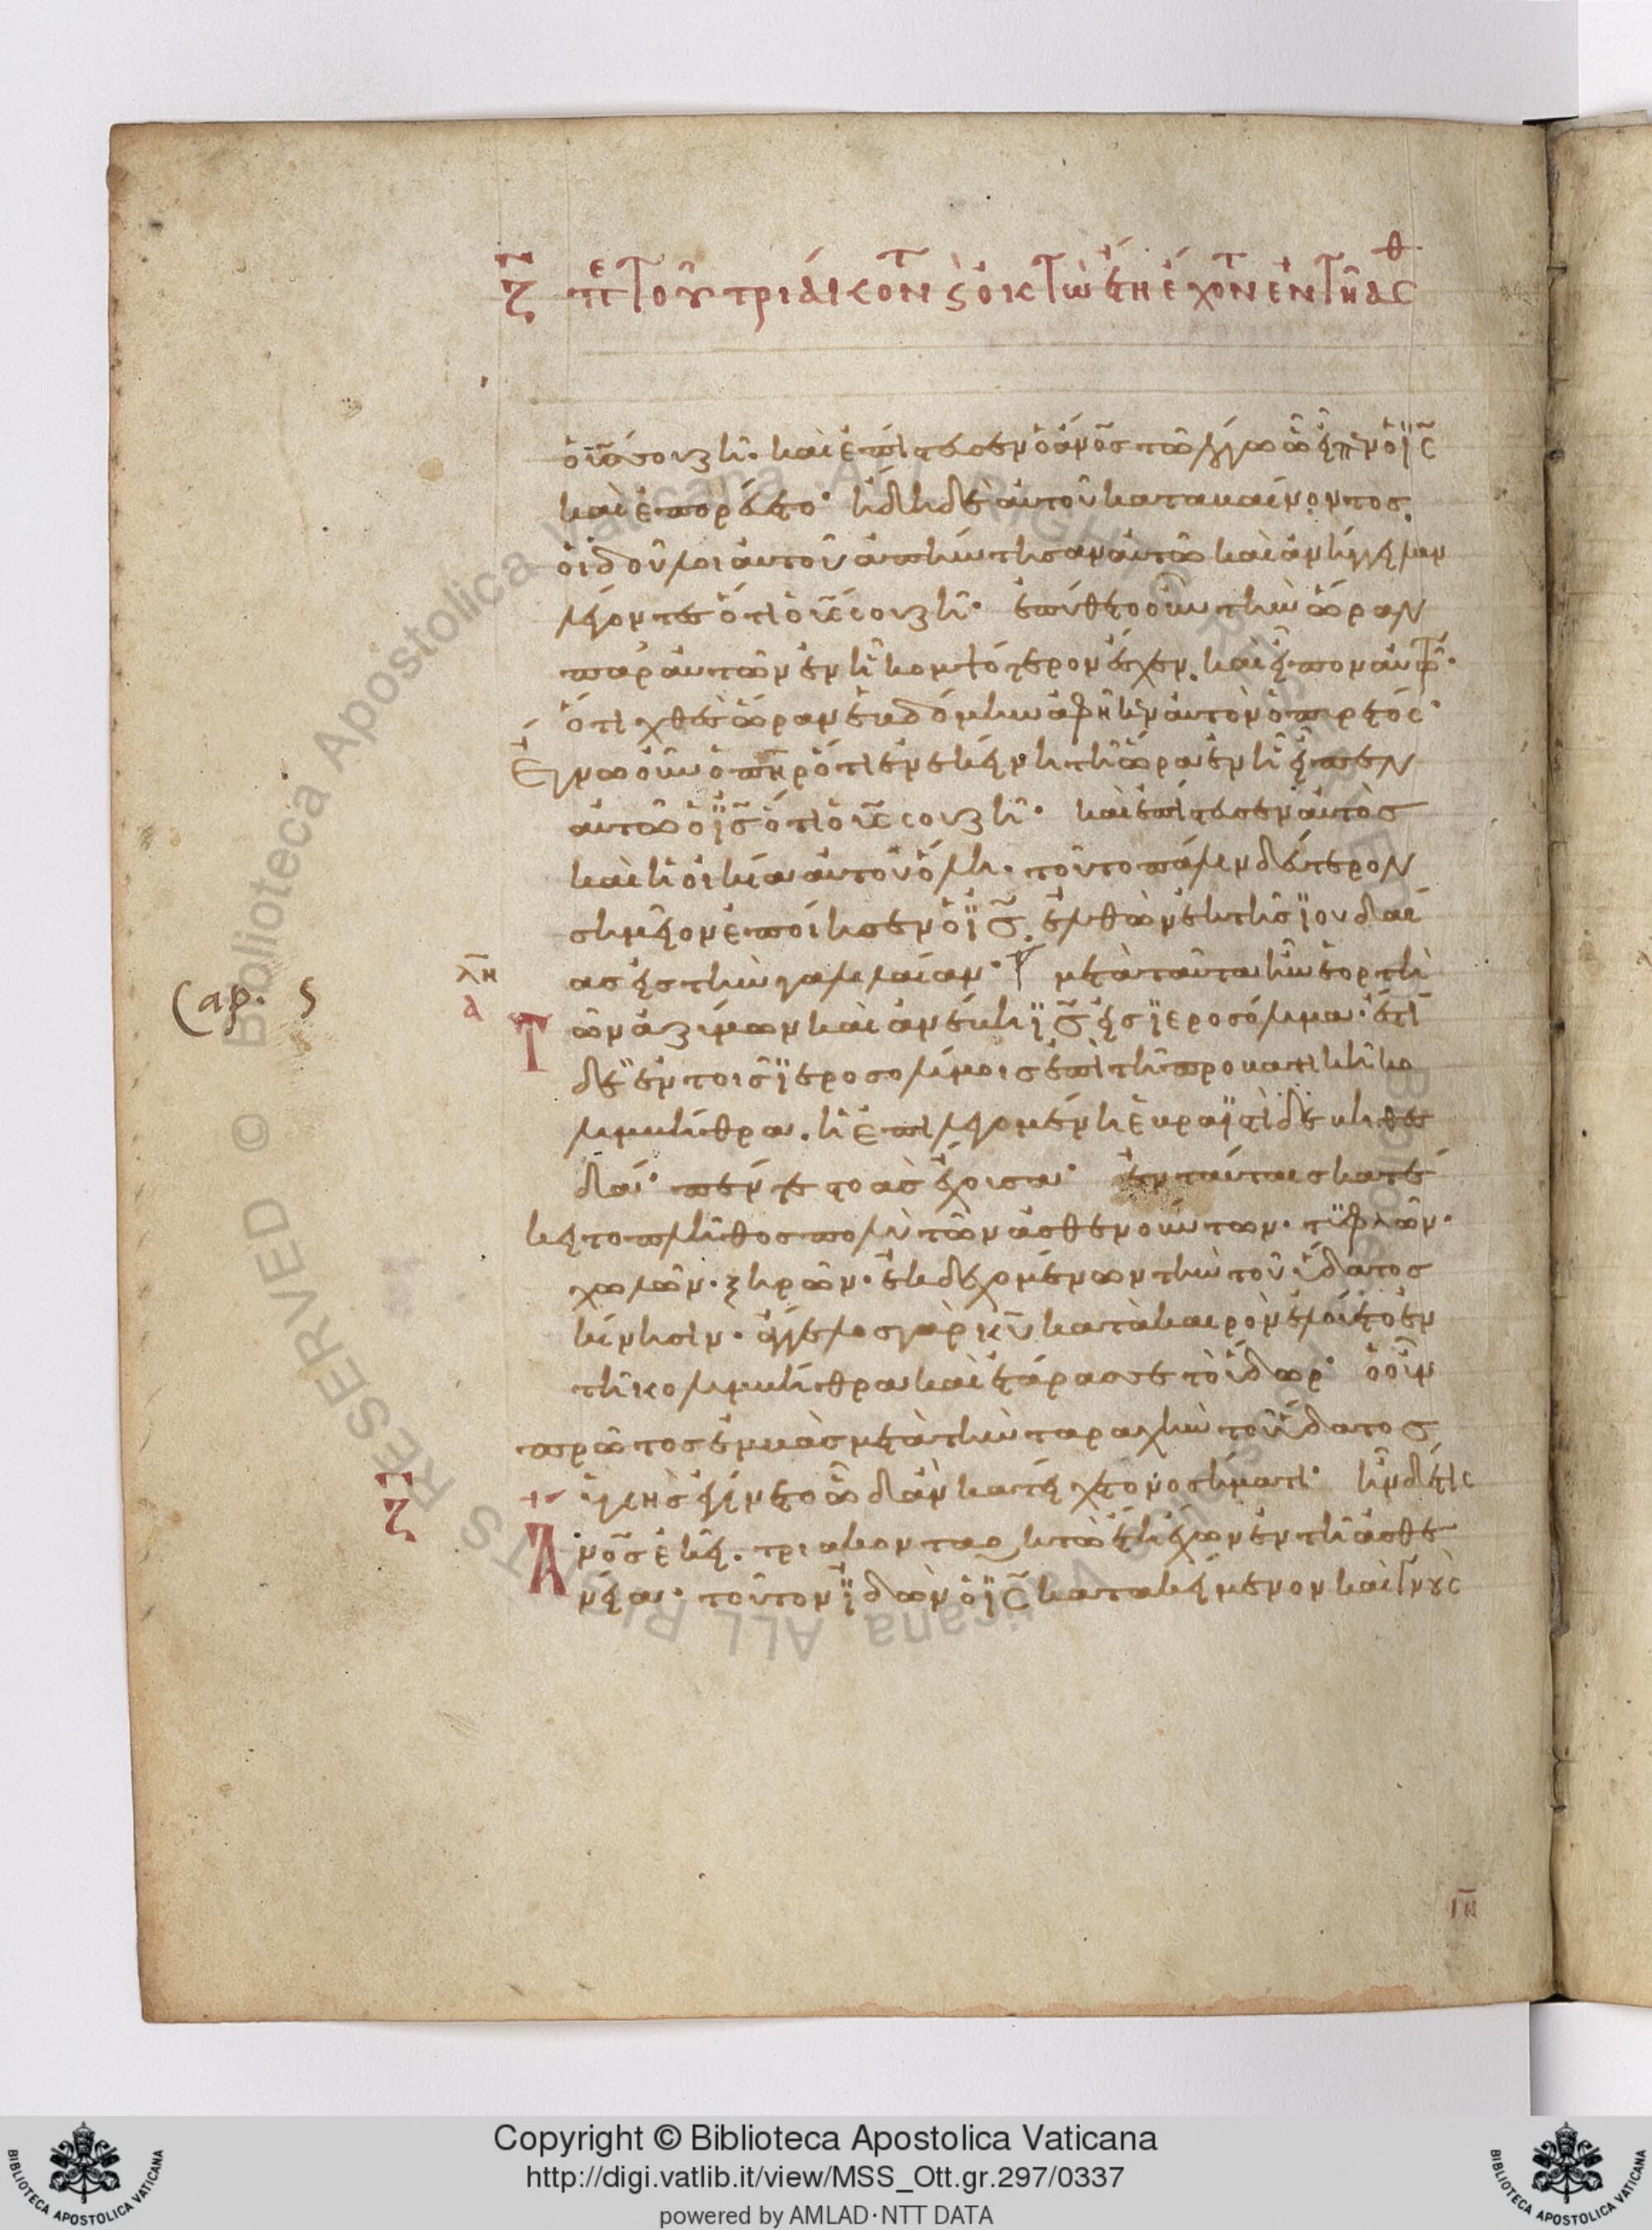 ζ̅ πε τοῦ τριάκοντ ς ὀκτὼ ἔτη ἔχοντ ἐν τῆ ἀσθ
ὁ υἱός σου ζῆ· καὶ ἐπίστευσεν ὁ ἄνο̅ς τῶ λόγω ὧ εἶπεν ὁ ι̅ς
καὶ ἐπορεύετο· ἤδη δὲ αὐτοῦ καταβαίνοντος,
οἱ δοῦλοι αὐτοῦ ἀπήντησαν αὐτῶ καὶ ἀνήγγειλαν
λέγοντες ὅτι ὁ υἱός σου ζῆ· ἐπύθετο οὖν τὴν ὥραν
παρ αὐτῶν ἐν ῆ κομψότερον ἔσχεν. καὶ εἶπον αὐτῶ·
ὅτι χθὲς ὥραν ἑβδόμην ἀφῆκεν αὐτὸν ὁ πυρετός·
Ἔγνω οὖν ὁ πη̅ρ ὅτι ἐν ἐκείνη τῆ ὥρα ἐν ῆ εἶπεν
αὐτῶ ὁ ι̅ς ὅτι ὁ υἱός σου ζῆ· καὶ ἐπίστευσεν αὐτὸς
καὶ ἡ οἰκία αὐτοῦ ὅλη· τοῦτο πάλιν δεύτερον
σημεῖον ἐποίησεν ὁ ι̅ς, ἐλθὼν ἐκ τῆς ϊουδαί
ας εἰς τὴν γαλιλαίαν· μετὰ ταῦτα ἦν ἑορτὴ
λ̅η
α
Cap. 5
Τ
ῶν ἀζύμων καὶ ἀνέβη ι̅ς εἰς ϊεροσόλυμα· ἔστι
δὲ ἐν τοῖς ϊεροσολύμοις ἐπὶ τῆ προβατικῆ κο
λυμβήθρα. ἡ ἐπιλεγομένη ἑβραϊστὶ δὲ βηθεσ
δά· πέντε στοὰς ἔχουσα· ἐν ταύταις κατέ
κειτο πλῆθος πολὺ τῶν ἀσθενούντων· τϋφλῶν·
χωλῶν· ξηρῶν· ἐκδεχομένων τὴν τοῦ ὕδατος
κίνησιν· ἄγγελος γὰρ κ̅υ κατὰ καιρὸν ἐλούετο ἐν
τῆ κολυμβήθρα καὶ ἐτάρασσε τὸ ὕδωρ· ὁ οὖν
πρῶτος ἐμβὰς μετὰ τὴν ταραχὴν τοῦ ὕδατος
ὑγιὴς ἐγίνετο ὧ δὰν κατείχετο νοσήματι· ἦν δέ τις
ζ̅
Α
νο̅ς ἐκεῖ. τριάκοντα ὀκτὼ ἔτη ἔχων ἐν τῆ ἀσθε
νεία· τοῦτον ϊδὼν ὁ ι̅ς κατακείμενον καὶ γνοὺς
Copyright © Biblioteca Apostolica Vaticana
http://digi.vatlib.it/view/MSS_Ott.gr.297/0337
powered by AMLAD·NTT DATA